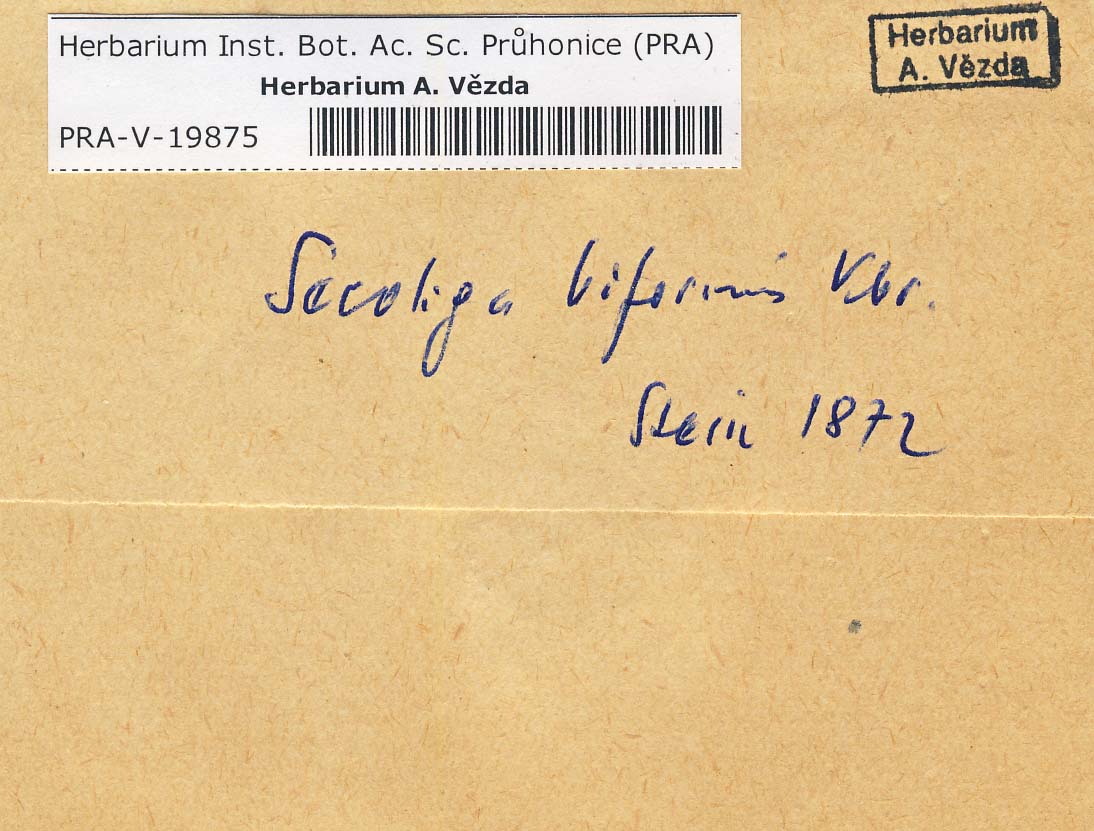 Herbarium Inst. Bot. Ac. Sc. Průhonice (PRA)
Herbarium A. Vězda
PRA-V-19875
Herbarium
A. Vězda
Secoliga biformis Kbr.
Stein 1872